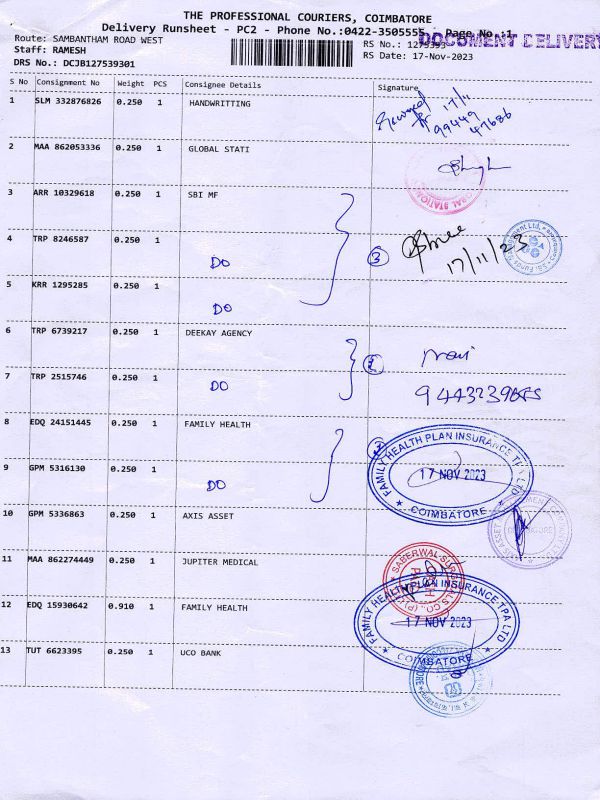 THE PROFESSIONAL COURIERS, COIMBATORE
Delivery Runsheet - PC2 - Phone No.:0422-3505555 Page No.:1
DOCUMENT DELIVERY
Route: SAMBANTHAM ROAD WEST
RS No.: 1275393
Staff: RAMESH
RS Date: 17-Nov-2023
DRS No.: DCJB127539301
S No Consignment No Weight PCS Consignee Details Signature
1 SLM 332876826 0.250 1 HANDWRITTING
Received 17/11
99449
47686
2 MAA 862053336 0.250 1 GLOBAL STATI
3 ARR 10329618 0.250 1 SBI MF
4 TRP 8246587 0.250 1 DO
3
17/11/23
5 KRR 1295285 0.250 1 DO
6 TRP 6739217 0.250 1 DEEKAY AGENCY
7 TRP 2515746 0.250 1 DO
8 EDQ 24151445 0.250 1 FAMILY HEALTH
FAMILY HEALTH PLAN INSURANCE TPA LTD
17 NOV 2023
COIMBATORE
9 GPM 5316130 0.250 1 DO
10 GPM 5336863 0.250 1 AXIS ASSET
11 MAA 862274449 0.250 1 JUPITER MEDICAL
12 EDQ 15930642 0.910 1 FAMILY HEALTH
FAMILY HEALTH PLAN INSURANCE-TPA LTD
17 NOV 2023
COIMBATORE
13 TUT 6623395 0.250 1 UCO BANK